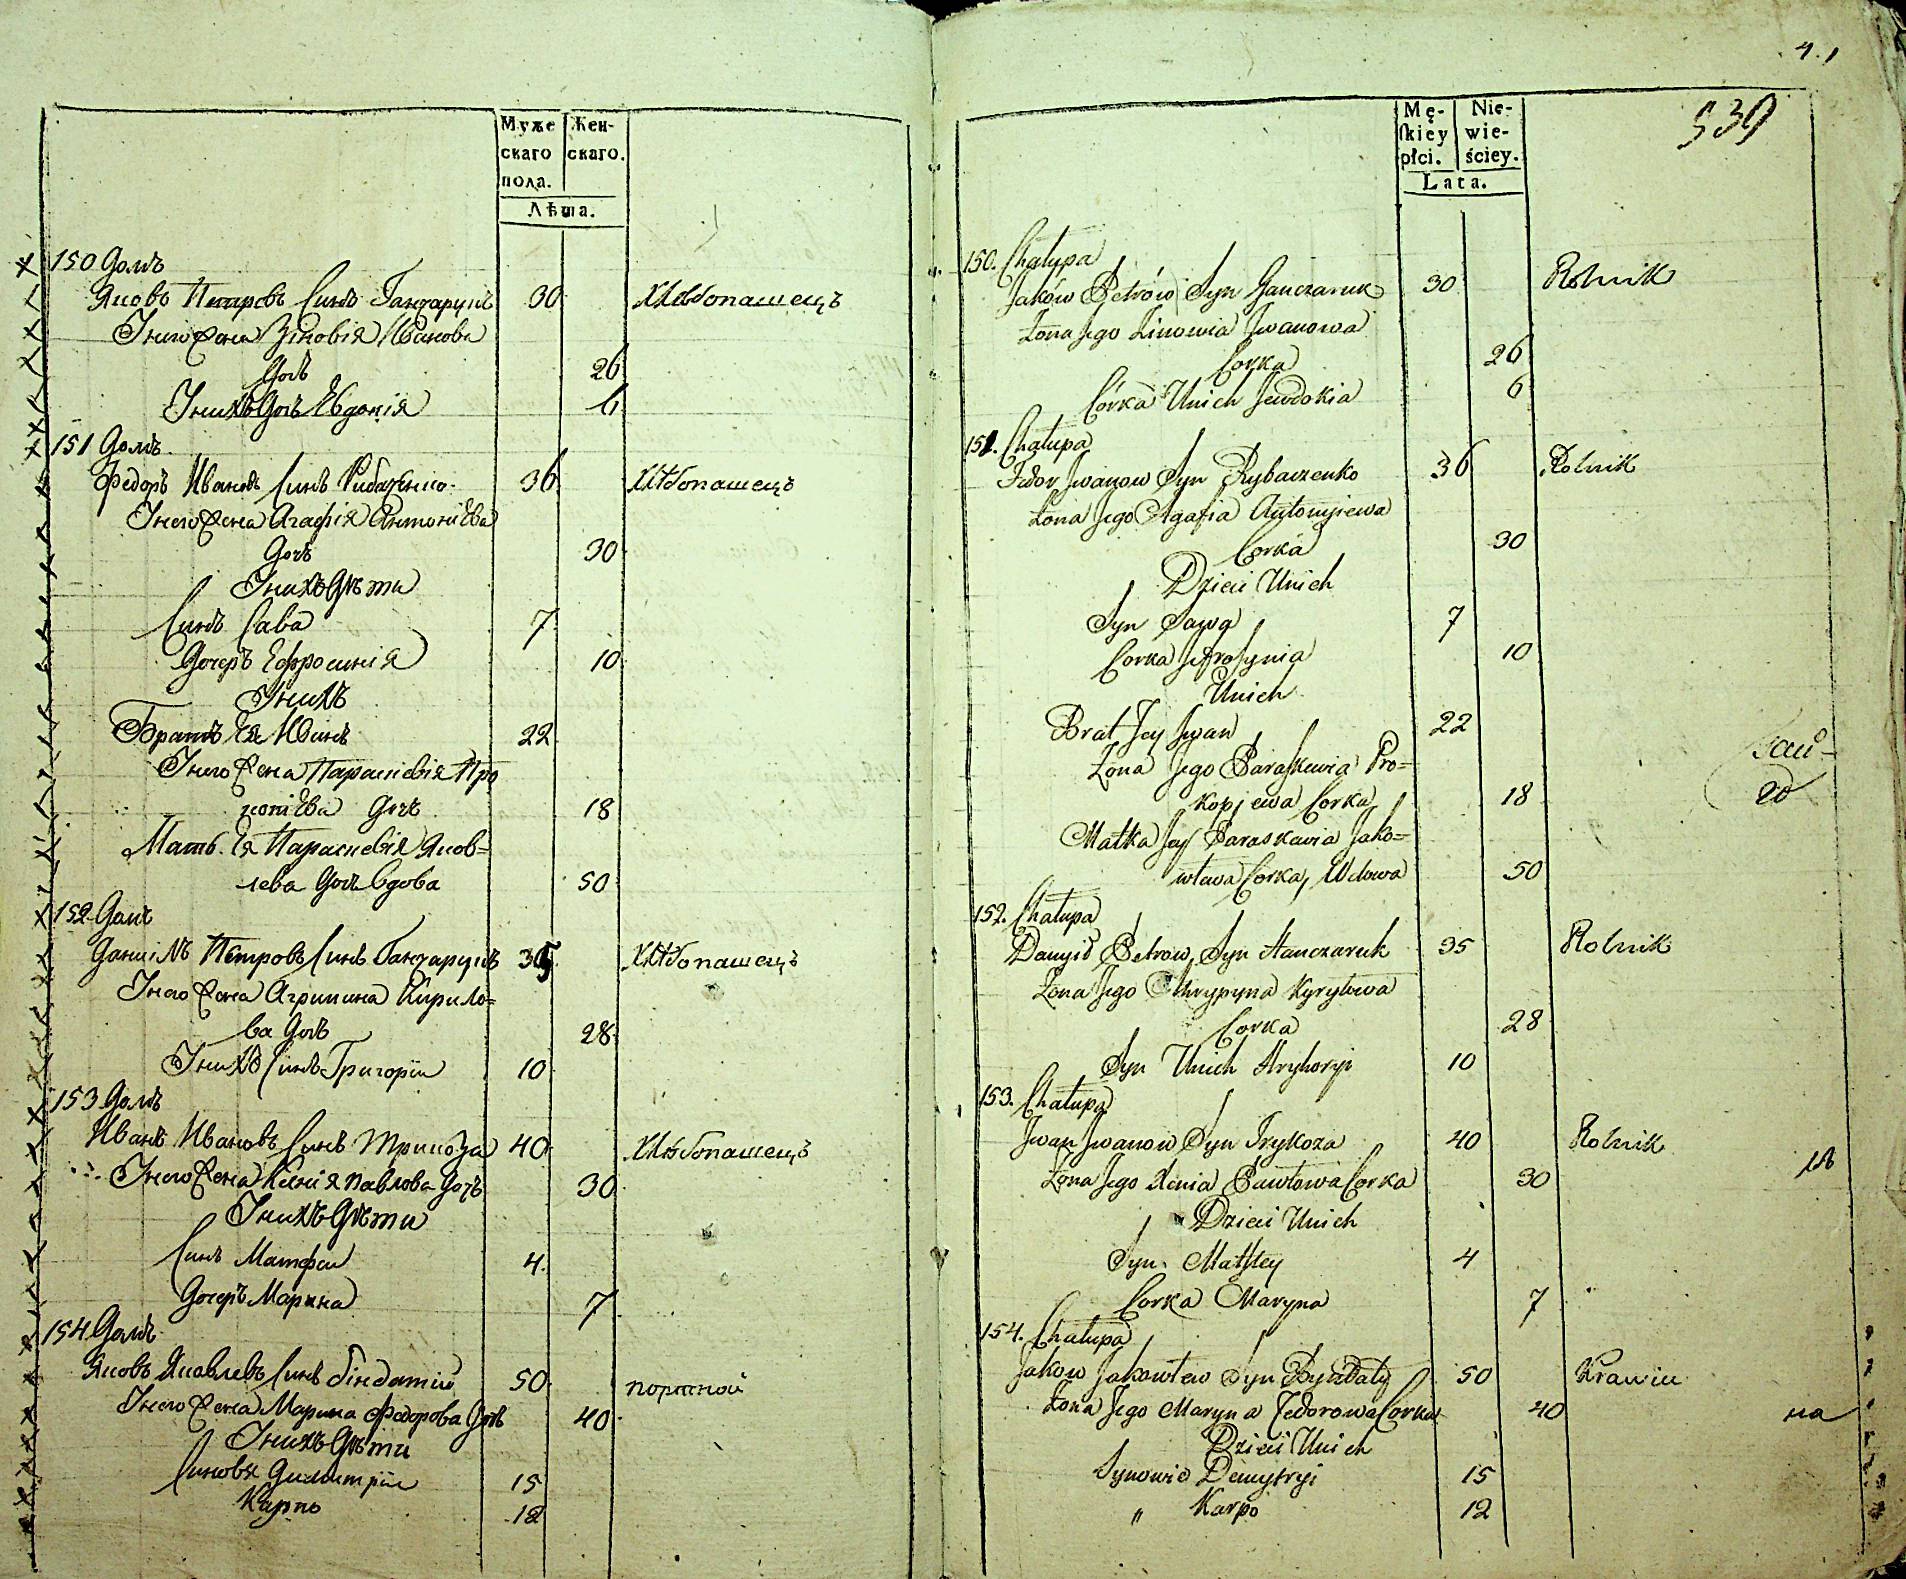 Муже
скаго
пола.
Жен-
скаго.
Лѣта.
150 Домъ
Яковъ Петровъ Синъ Ганчарукъ 30 хлѣбопашецъ
У него жена Зѣновія Иванова
Доч 26
У нихъ Доч Евдокія 6
151 Домъ
Федоръ Ивановъ Синъ Рибаченко 36 хлѣбопашецъ
У него жена Агафія Антоніева
Доч 30
У нихъ Дѣти
Синъ Сава 7
Дочеръ Ефросинія 10
У нихъ
Братъ Ея Иванъ 22
У него жена Параскевія Про
копіева Доч 18
Мать Ея Параскевія Яков=
лева Доч Вдова 50
152 Домъ
Даніилъ Петровъ Синъ Ганчарукъ 35 хлѣбопашецъ
У него жена Агрипина Кирило=
ва Доч 28
У нихъ Синъ Григорій 10
153 Домъ
Иванъ Ивановъ Синъ Трикоза 40 хлѣбопашецъ
У него жена Ксенія Павлова Доч 30
У нихъ Дѣти
Синъ Матфей 4
Дочеръ Марина 7
154 Домъ
Яковъ Яковлевъ Синъ Биндатій 50 портной
У него жена Марина Федорова Доч 40
У нихъ Дѣти
Синовя Димитрій 15
Карпо 12
539
Mę-
skiey
płci.
Nie-
wie-
ściey.
Lata.
150. Chałupa
Jaków Petrów Syn Ganczaruk 30 Rolnik
Żona Jego Zinowia Iwanowa
Corka 26
Córka Unich Jewdokia 6
151. Chałupa
Fedor Iwanow Syn Rybaczenko 36 Rolnik
Żona Jego Agafia Antonijewa
Corka 30
Dzieci Unich
Syn Sawa 7
Corka Jefrosynia 10
Unich
Brat Jey Iwan 22
Żona Jego Paraskewia Pro=
kopjewa Corka 18
Matka Jey Paraskewia Jako=
wlewa Corka, Wdowa 50
152. Chałupa
Danyił Petrow Syn Hanczaruk 35 Rolnik
Żona Jego Ahrypyna Kyryłowa
Corka 28
Syn Unich Hryhoryi 10
153. Chałupa
Iwan Iwanow Syn Trykoza 40 Rolnik
Żona Jego Xenia Pawłowa Corka 30
Dzieci Unich
Syn Matfiey 4
Corka Maryna 7
154. Chałupa
Jakow Jakowlew Syn Byndaty 50 Krawiec
Żona Jego Maryna Fedorowa Corka 40
Dzieci Unich
Synowie Demytryi 15
" Karpo 12
на